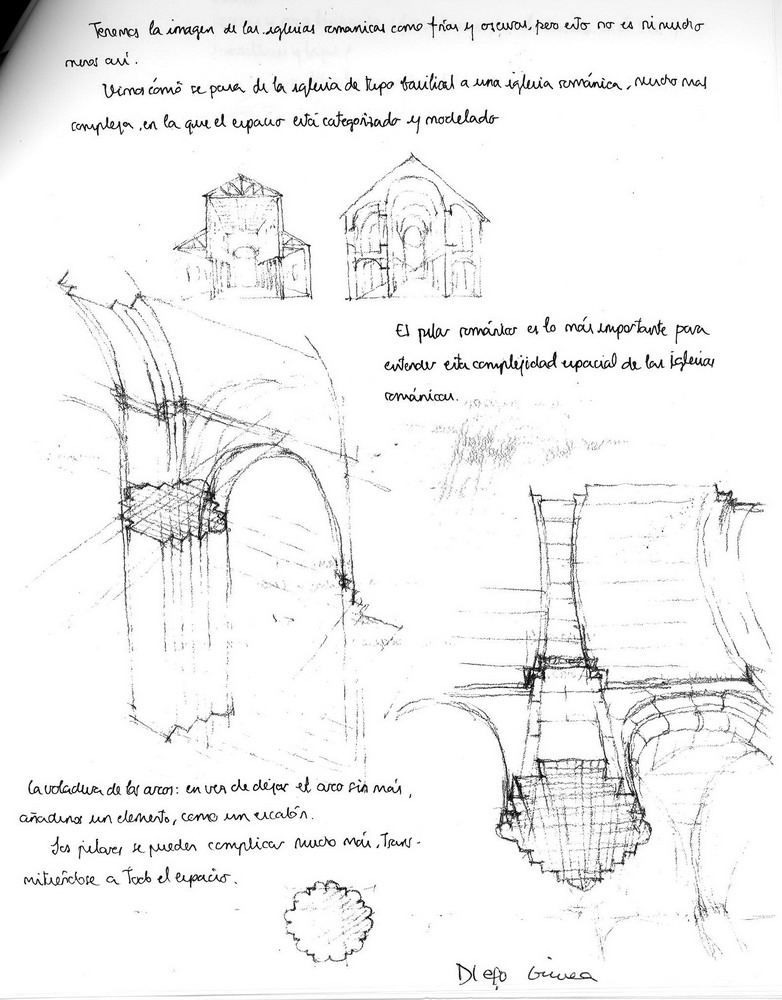 Tenemos la imagen de las iglesias romanicas como frías y oscuras, pero esto no es ni mucho
menos así.
Vimos cómo se pasa de la iglesia de tipo basilical a una iglesia románica, mucho mas
compleja, en la que el espacio está categorizado y modelado
El pilar románico es lo más importante para
entender esta complejidad espacial de las iglesias
románicas.
La voladura de los arcos: en vez de dejar el arco sin más,
añadimos un elemento, como un escalón.
Los pilares se pueden complicar mucho más, trans-
mitiéndose a todo el espacio.
Diego